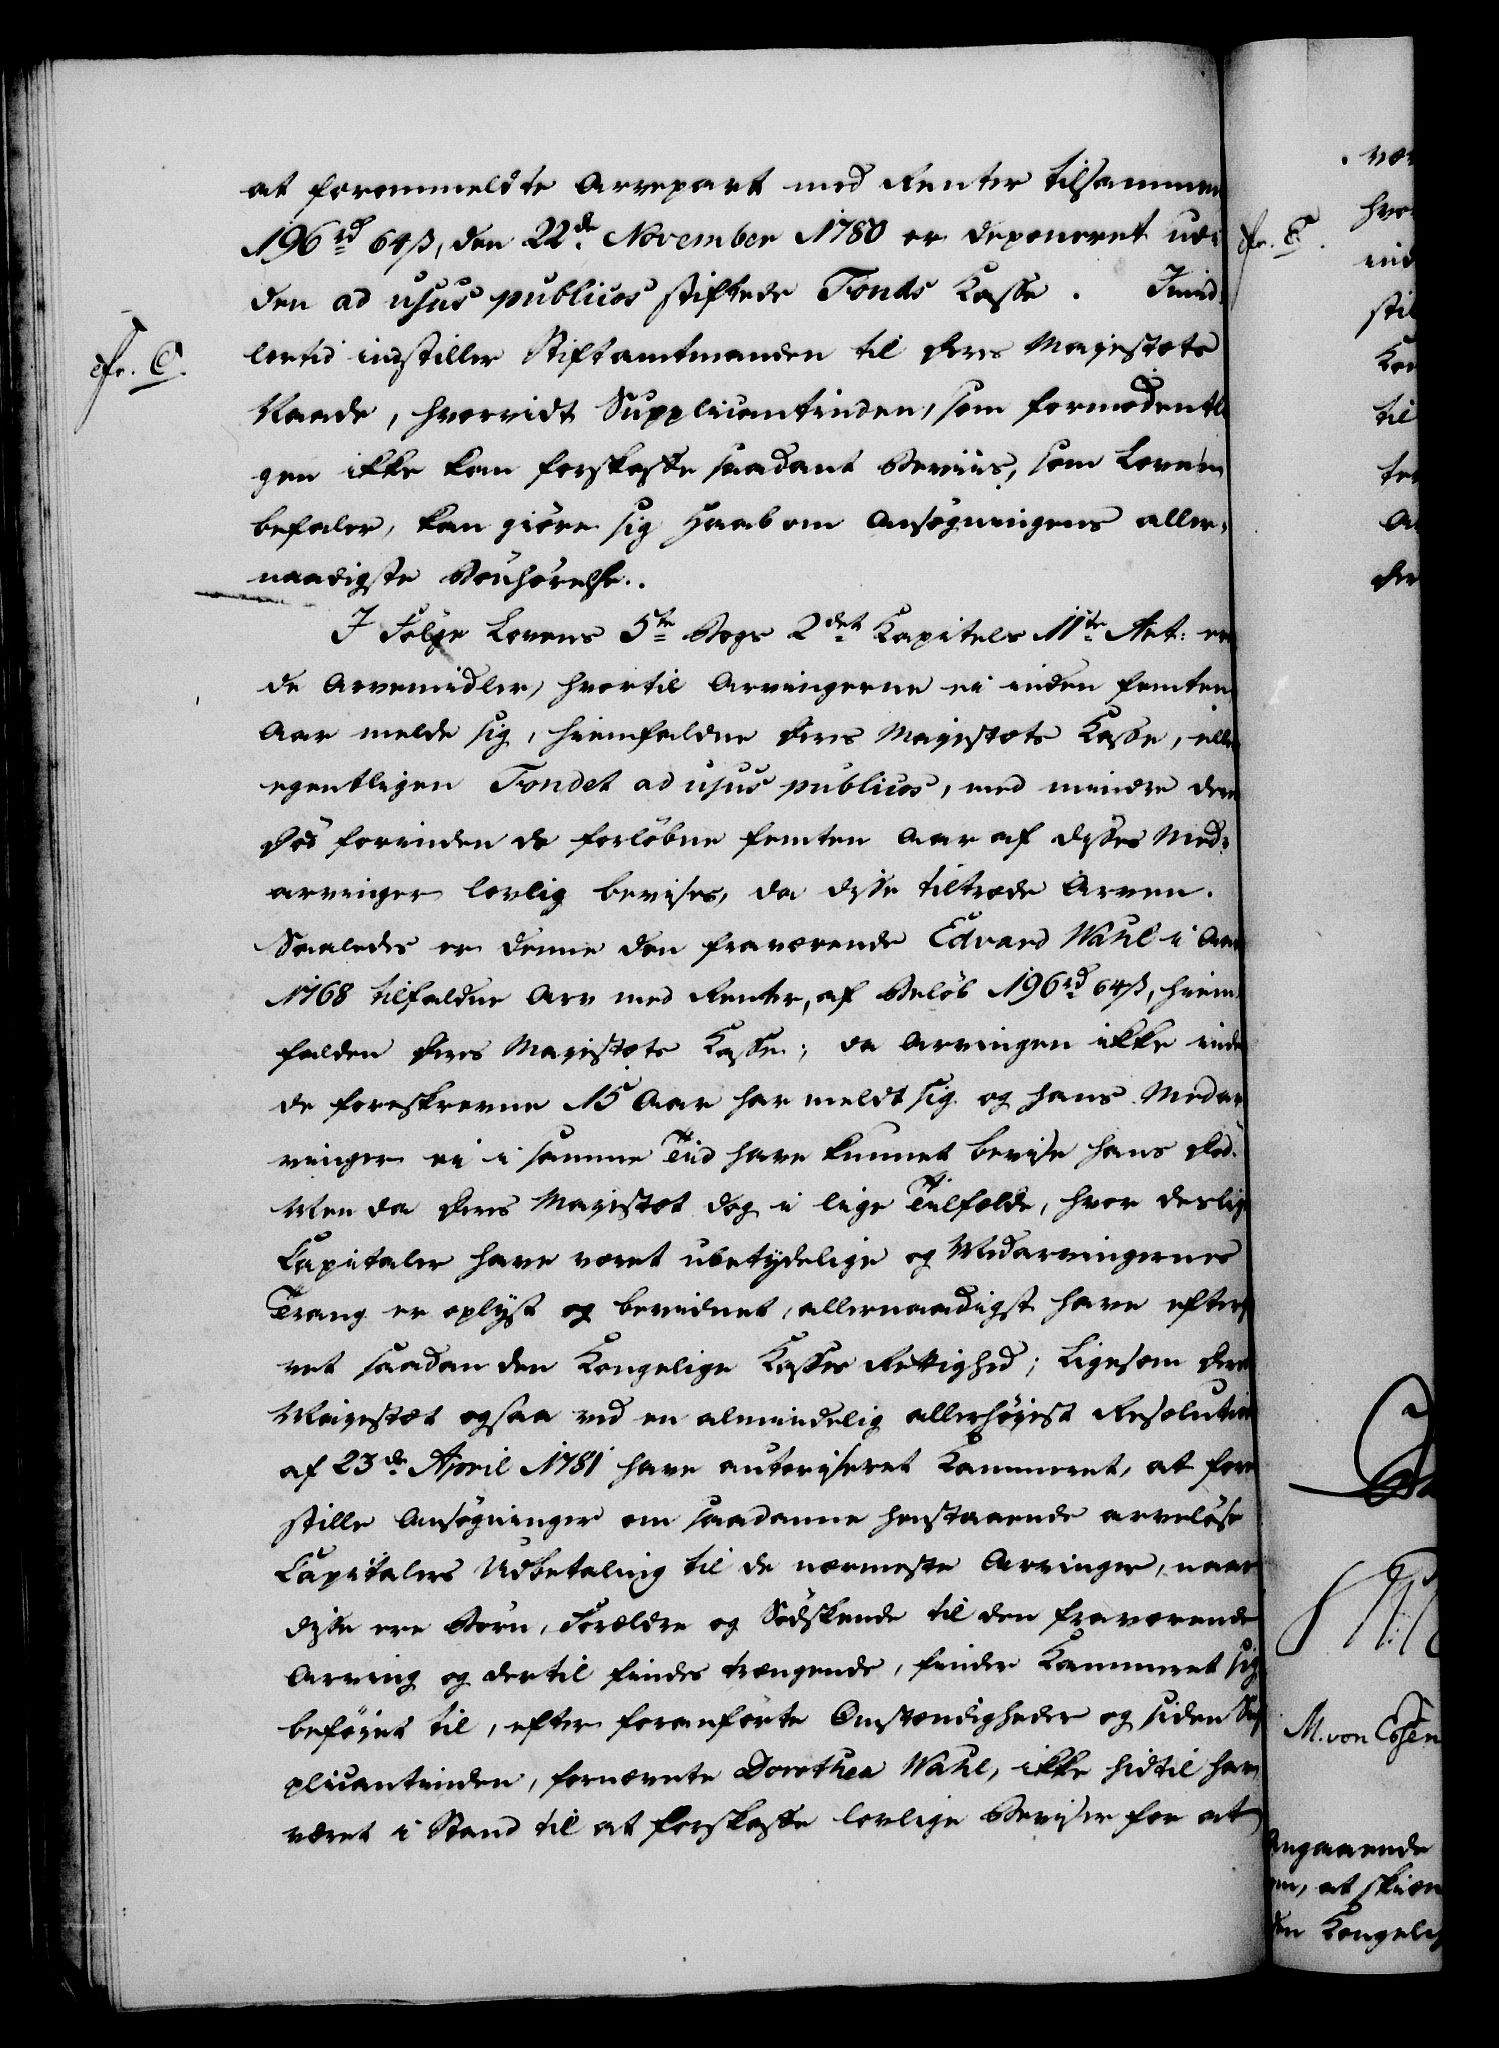 at forommeldte Arvepart med Renter tilsammen
196 rd 64 ß, den 22de November 1780 er deponeret udi
den ad usus publicos stiftede Fonds Kasse. Imid-
cfr. C. lertid indstiller Stiftamtmanden til Deres Majestæts
Naade, hvorvidt Supplicantinden, som formodentli-
gen ikke kan forskaffe saadant Beviis, som Loven
befaler, kan giöre sig Haab om Ansögningens aller-
naadigste Bönhörelse.
I Fölge Lovens 5te Bogs 2det Kapitels 11te Art: er
de Arvemidler, hvortil Arvingerne ei inden femten
Aar melde sig, hiemfaldne Deres Majestæts Kasse, eller
egentligen Fondet ad usus publicos, med mindre deres
Död forinden de forlöbne femten Aar af disses Med-
arvinger lovlig bevises, da disse tiltræde Arven.
Saaledes er denne den fraværende Edvard Wahl i Aar
1768 tilfaldne Arv med Renter, af Belöb 196 rd 64 ß, hiem-
falden Deres Majestæts Kasse; da Arvingen ikke inden
de foreskrevne 15 Aar har meldt sig og hans Medar-
vinger ei i samme Tiid have kunnet bevise hans Död.
Men da Deres Majestæt dog i lige Tilfælde, hvor deslige
Capitaler have været ubetydelige og Medarvingernes
Trang er oplyst og bevidnet, allernaadigst have efterg-
vet saadan den Kongelige Kasses Rettighed; ligesom Deres
Majestæt ogsaa ved en almindelig allerhöjest Resolution
af 23de April 1781 have autoriseret Kammeret, at fore-
stille Ansögninger om saadanne henstaaende arvelöse
Capitalers Udbetaling til de nærmeste Arvinger, naar
disse ere Börn, Forældre og Södskende til den fraværende
Arving og dertil findes trængende, finder Kammeret sig
beföjet til, efter foranförte Omstændigheder og siden Sup-
plicantinden, fornævnte Dorothea Wahl, ikke hidtil har
været i Stand til at forskaffe lovlige Beviser for at
cfr. E.
M. von Essen
Angaaende
at skien
den Kongelig